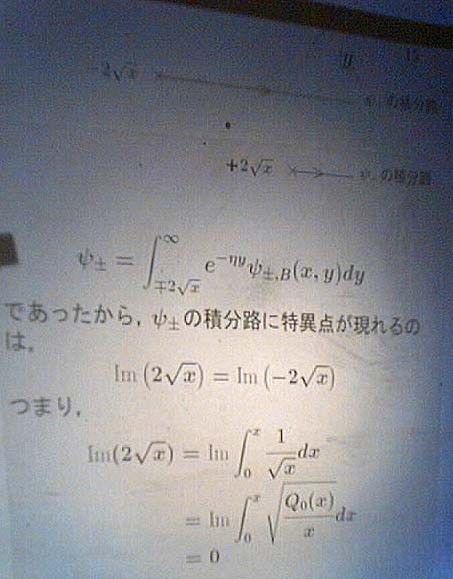 y
-2√x
ψ₊の積分路
+2√x
ψ₋の積分路
ψ± = ∫_{∓2√x}^{∞} e^{-ηy}ψ_{±,B}(x, y)dy
であったから，ψ±の積分路に特異点が現れるの
は，
Im (2√x) = Im (-2√x)
つまり，
Im(2√x) = Im ∫_0^x 1/√x dx
= Im ∫_0^x √(Q₀(x)/x) dx
= 0